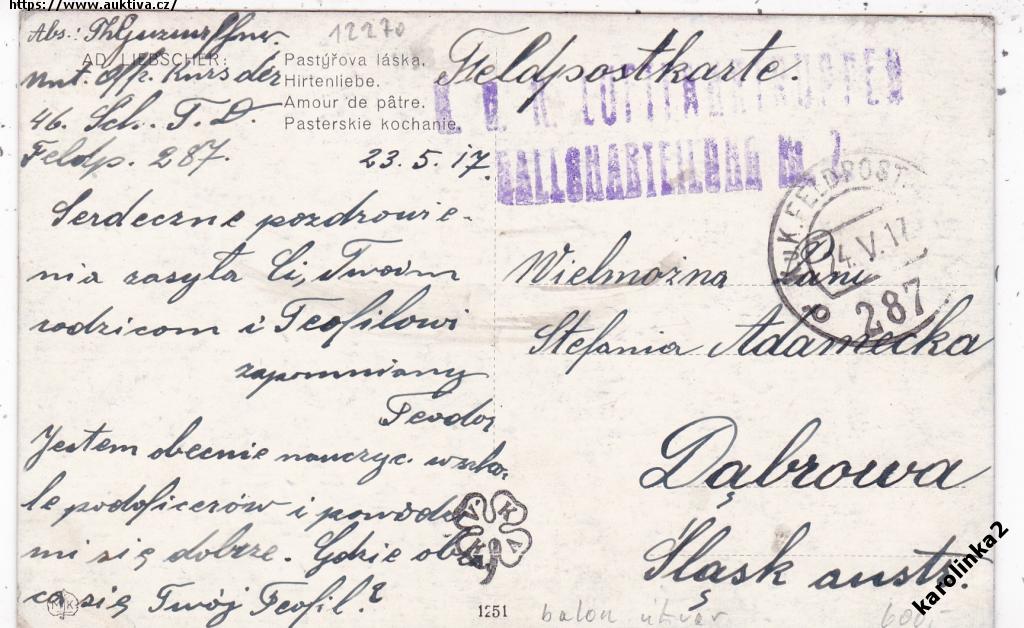 https://www.auktiva.cz/
Abs:
12270
AD. LIEBSCHER:
Pastýřova láska.
Hirtenliebe.
Amour de pâtre.
Pasterskie kochanie.
Unt. Off. Kurs der
46. Sch. T. D.
Feldp. 287.
23. 5. 17.
Feldpostkarte.
K. U. K. LUFTFAHRTRUPPEN
BALLONABTEILUNG No 2
K.u.K. FELDPOST
24. V. 17
287
Serdeczne pozdrowie-
nia zasyła Ci, Twoim
rodzicom i Teofilowi
zapomniany
Teodor
Jestem obecnie nauczyc. w szko-
le podoficerów i powodzi
mi się dobrze. Gdzie obe-
ca się Twój Teofil?
Wielmożna Pani
Stefania Adamecka
Dąbrowa
Śląsk austr.
V. K. K. V.
MK
1251
balon. útvar
600,-
karolinka2